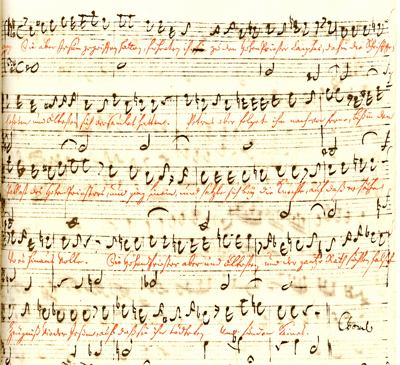 Die aber Jesum gegriffen hatten, führeten ihn zu dem Hohenpriester Caiphas, dahin die Schrifft
gelehrten und Ältesten sich versamlet hatten. Petrus aber folgete ihm nach von ferne, biß in den
Pallast des Hohenpriesters, und ging hinein, und satzte sich bey die Knechte, auf daß er sähe
wo es hinaus wolte. Die Hohenpriester aber und Ältesten, und der gantze Rath suchten falsche
Zeugniß wieder Jesum, auf daß sie ihn tödteten, und funden keines. Choral